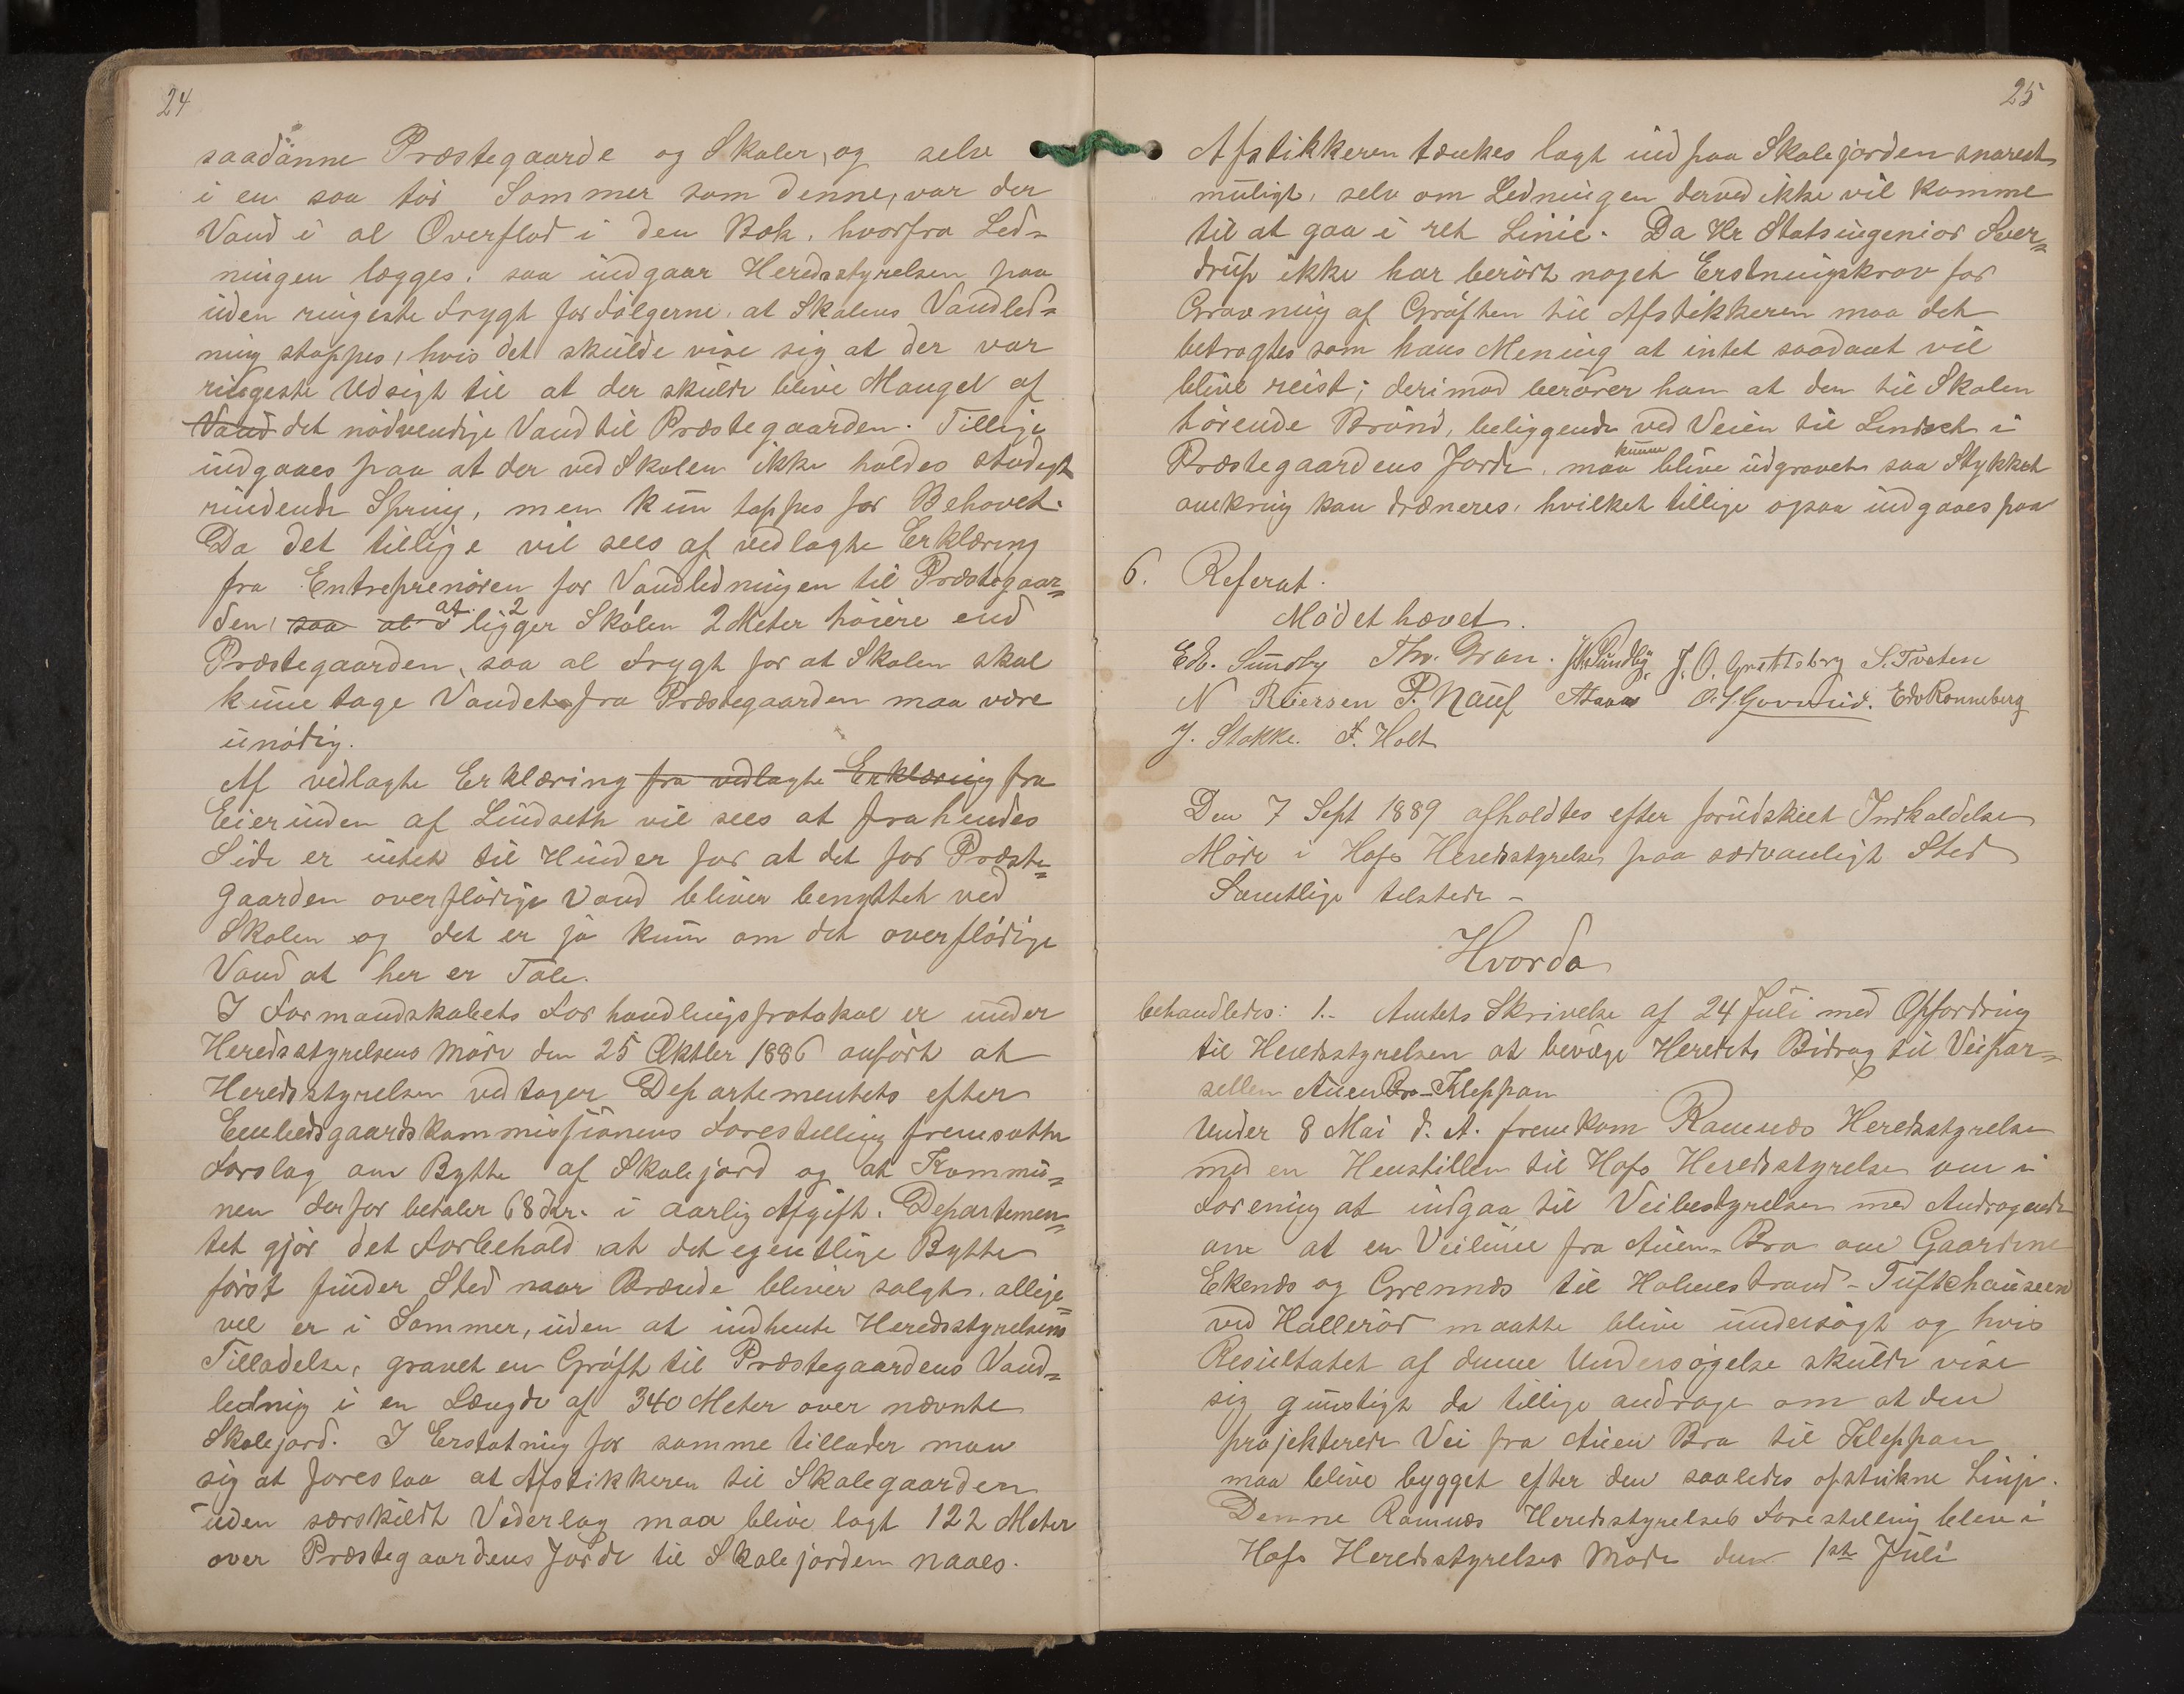 24
saadanne Præstegaarde og Skoler, og selv
i en saa tör Sommer som denne, var der
Vand i al Overflod i den Bæk, hvorfra Led-
ningen lægges, saa indgaar Heredsstyrelsen paa
uden ringeste Frygt for Fölgerne, at Skolens Vandled-
ning stoppes, hvis det skulde vise sig at der var
ringeste Udsigt til at der skulde blive Mangel af
Vand det nödvendige Vand til Præstegaarden. Tillige
indgaaes paa at der ved Skolen ikke holdes stadigt
rindende Spring, men kun tappes for Behovet.
Da det tillige vil sees af vedlagte Erklæring
fra Entreprenören for Vandledningen til Præstegaar-
den, saa at ligger Skolen 2 Meter höiere end
Præstegaarden, saa al Frygt for at Skolen skal
kune tage Vandet fra Præstegaarden maa være
unödig.
Af vedlagte Erklæring fra vedlagte Erklæring fra
Eierinden af Lindseth vil sees at fra hendes
Side er intet til Hinder for at det for Præste-
gaarden overflödige Vand bliver benyttet ved
Skolen og det er jo kun om det overflödige
Vand at her er Tale.
I Formandskabets Forhandlingsprotokol er under
Heredsstyrelsens Möde den 25 Oktbr 1886 anfört at
Heredsstyrelsen vedtager Departementets efter
Embedsgaardskommissionens Forestilling fremsatte
Forslag om Bytte af Skolejord og at Kommu-
nen derfor betaler 68 Kr. i aarlig Afgift. Departemen-
tet gjör det Forbehold at det egentlige Bytte
först finder Sted naar Brænde bliver solgt, allige-
vel er i Sommer, uden at indhente Heredsstyrelsens
Tilladelse, gravet en Gröft til Præstegaardens Vand-
ledning i en Længde af 340 Meter over nævnte
Skolejord. I Erstatning for samme tillader man
sig at foreslaa at Afstikkeren til Skolegaarden
uden særskildt Vederlag maa blive lagt 122 Meter
over Præstegaardens Jorde til Skolejorden naaes.
25
Afstikkeren tænkes lagt ind paa Skolejorden snarest
muligt, selv om Ledningen derved ikke vil komme
til at gaa i ret Linie. Da Hr Statsingeniör Sver-
drup ikke har berört noget Erstningskrav for
Gravning af Gröften til Afstikkeren maa det
betragtes som hans Mening at intet saadant vil
blive reist; derimod berörer han at den til Skolen
hörende Brönd, beliggende ved Veien til Lindset i
Præstegaardens Jorde, maa kunne blive udgravet saa Stykket
omkring kan dræneres, hvilket tillige ogsaa indgaaes paa
6. Referat.
Mödet hævet.
Edv. Sundby Thv. Gran. J. O. Grettebery S. Tveten
N Riersen P. Nauf Edv Ronneberg
J. Stokke. F. Holt
Den 7 Sept 1889 afholdtes efter forudskeet Indkaldelse
Möde i Hofs Heredsstyrelse paa sædvanligt Sted
Samtlige tilstede -
Hvorda
behandledes: 1.- Amtets Skrivelse af 24 Juli med Opfordring
til Heredsstyrelsen at bevilge Heredets Bidrag til Veipar-
sellen Auen Bro - Kleppan
Under 8 Mai d. A. fremkom Ramnæs Heredsstyrelse
med en Henstillen til Hofs Heredsstyrelse om i
Forening at indgaa til Veibestyrelsen med Andragende
om at en Veilinie fra Auen-Bro om Gaardene
Ekenæs og Grennæs til Holmestrand - Tuftehauseen
ved Halleröd maatte blive undersögt og hvis
Resultatet af denne Undersögelse skulde vise
sig gunstigt da tillige andrage om at den
projekterede Vei fra Auen Bro til Kleppan
maa blive bygget efter den saaledes opstukne Linje.
Denne Ramnæs Heredsstyrelses Forestilling blev i
Hofs Heredsstyrelses Möde den 1ste Juli